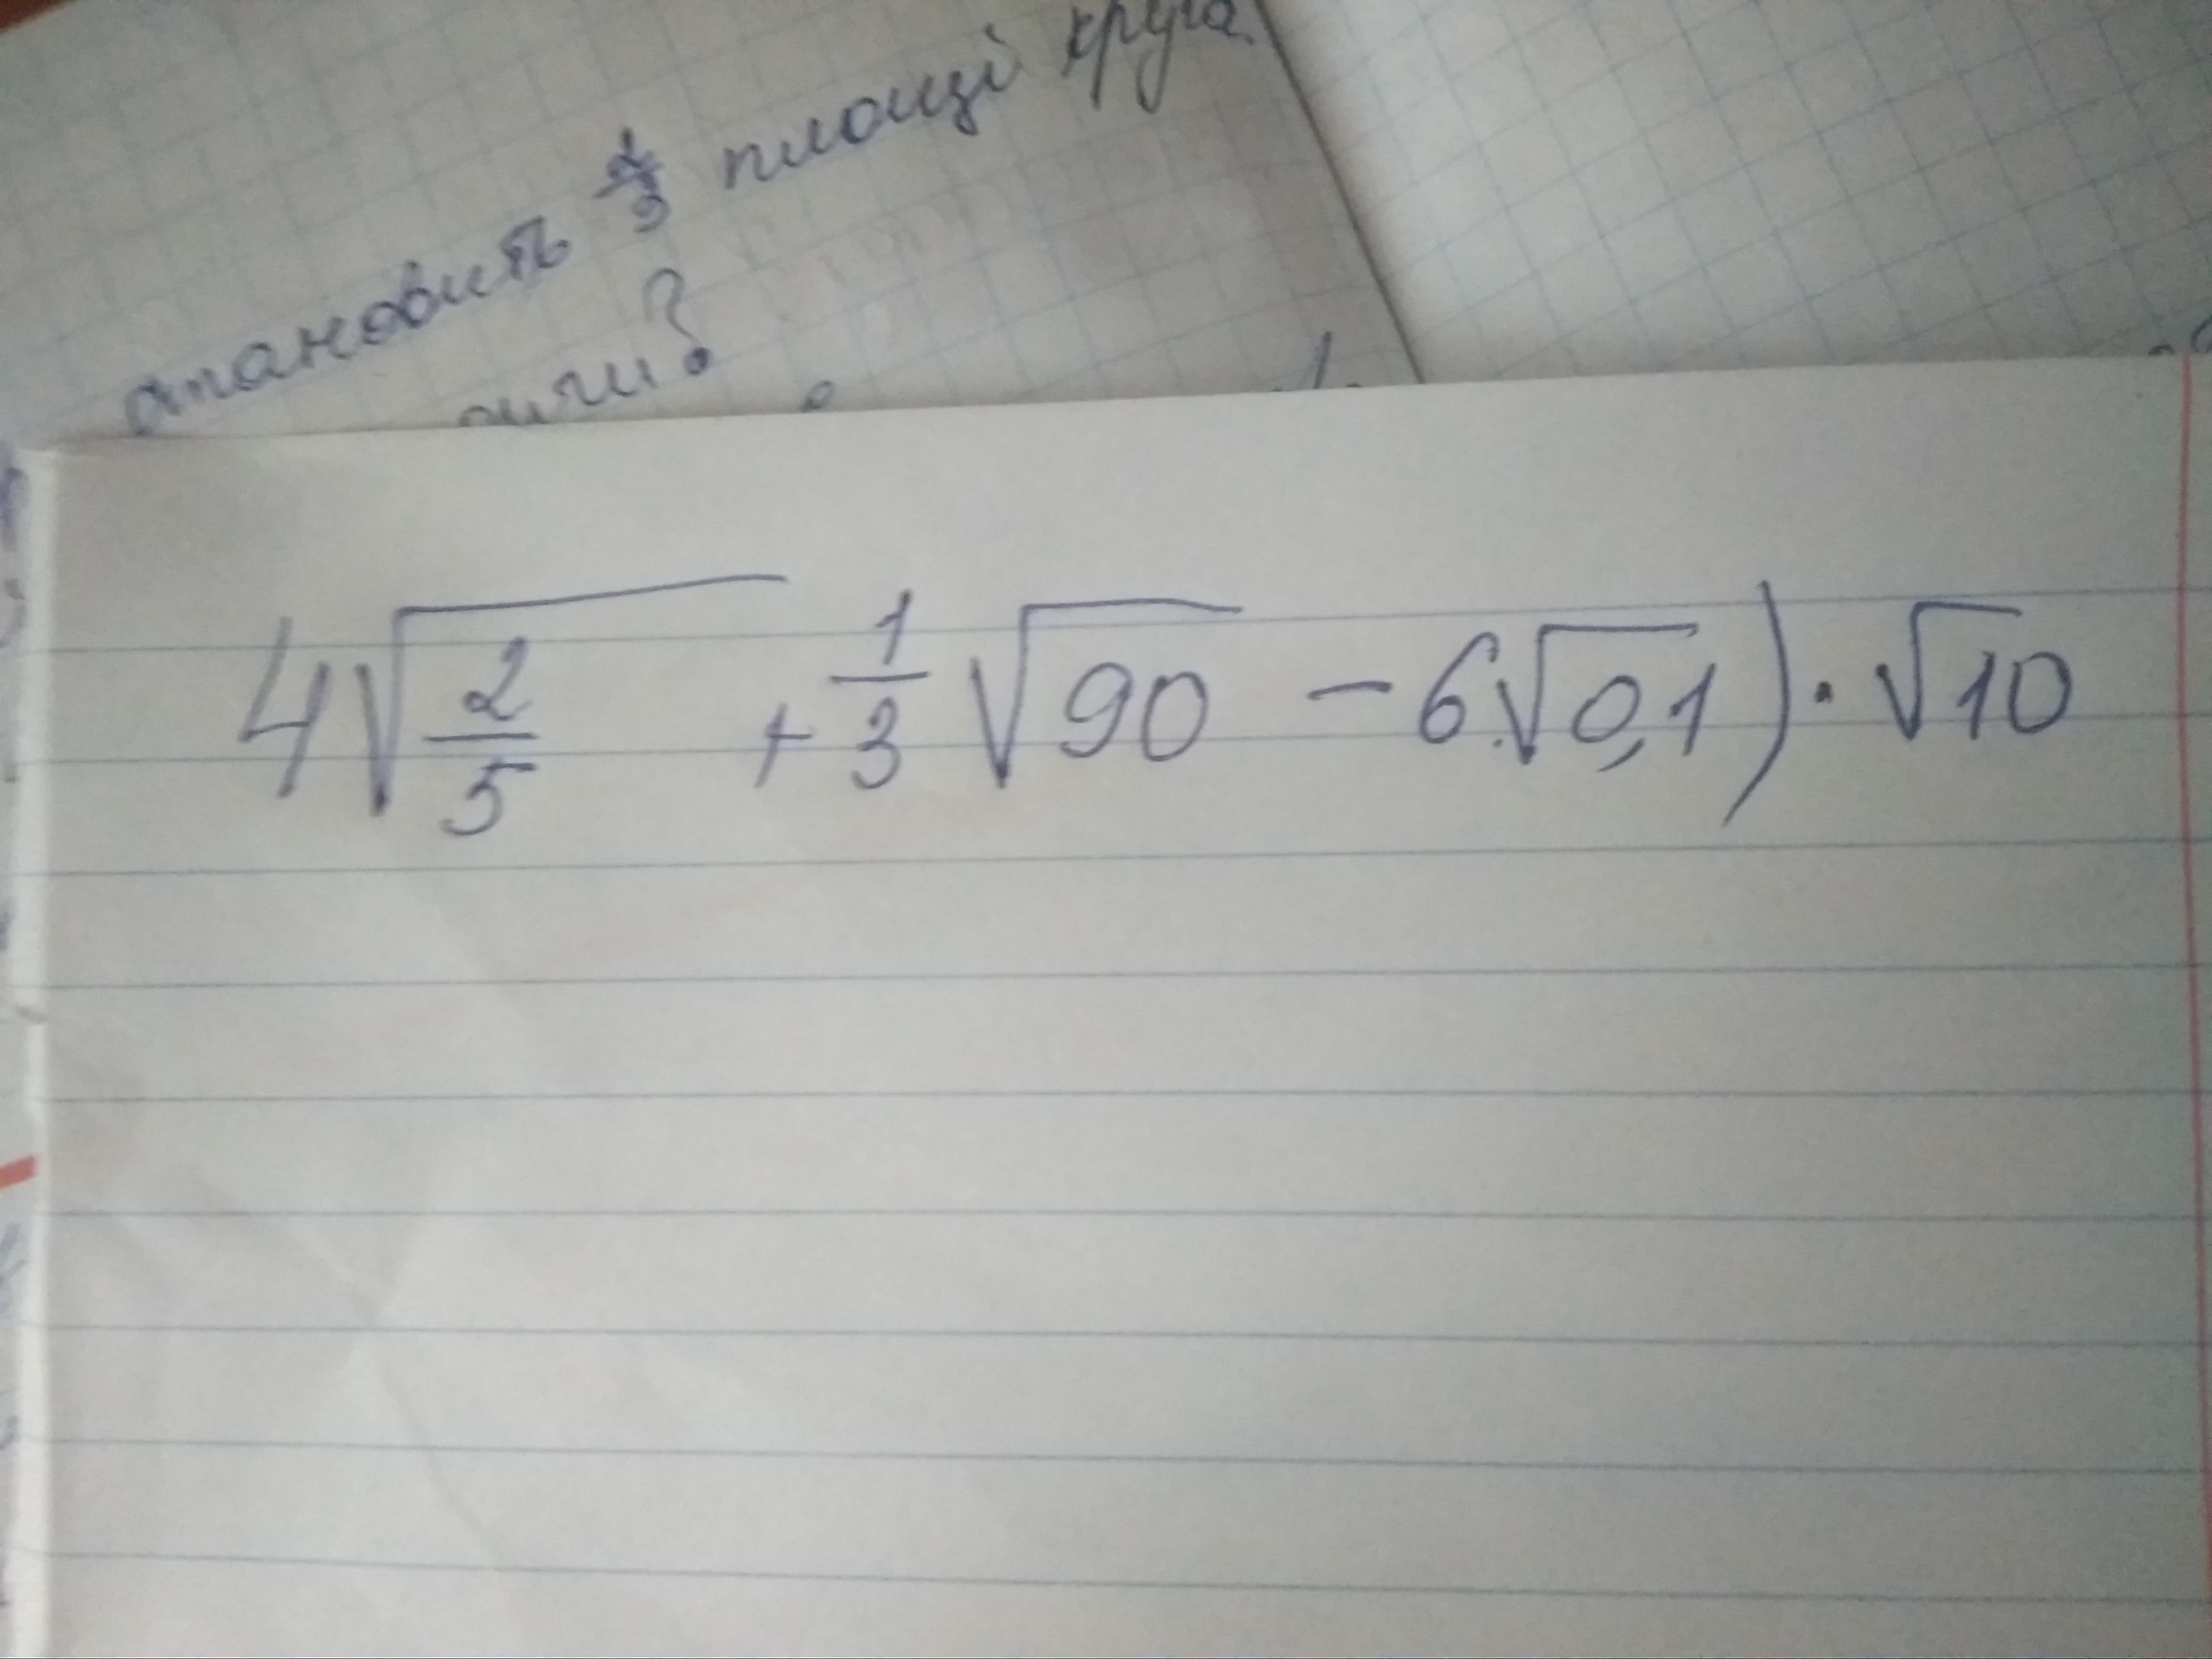 становить 2/3 площі круга.
4√(2/5) + 1/3 √90 - 6√0,1) · √10